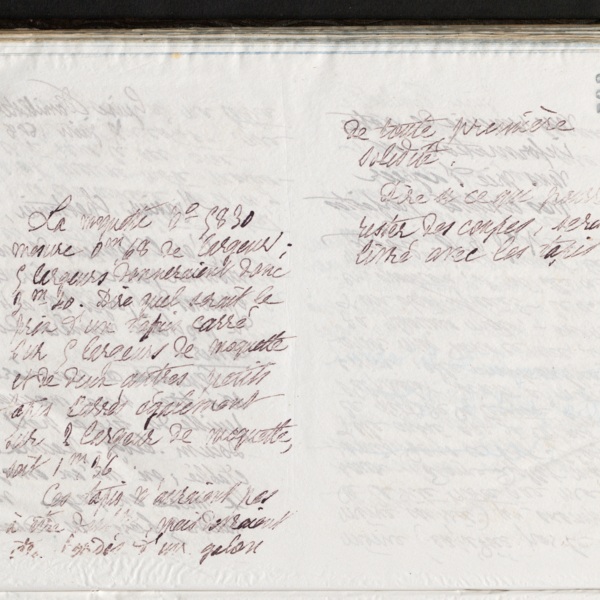 La moquette No 5830
mesure 0m68 de largeur;
5 largeurs donneraient donc
3m40. Dire quel serait le
prix d'un tapis carré
sur 5 largeurs de moquette
et de deux autres petits
tapis carrés également
sur 2 largeurs de moquette,
soit 1m36.
Ces tapis n'auraient pas
à être mais seraient
bordés d'un galon
de toute première
solidité.
Dire si ce qui
rester des coupes, sera
livré avec les tapis